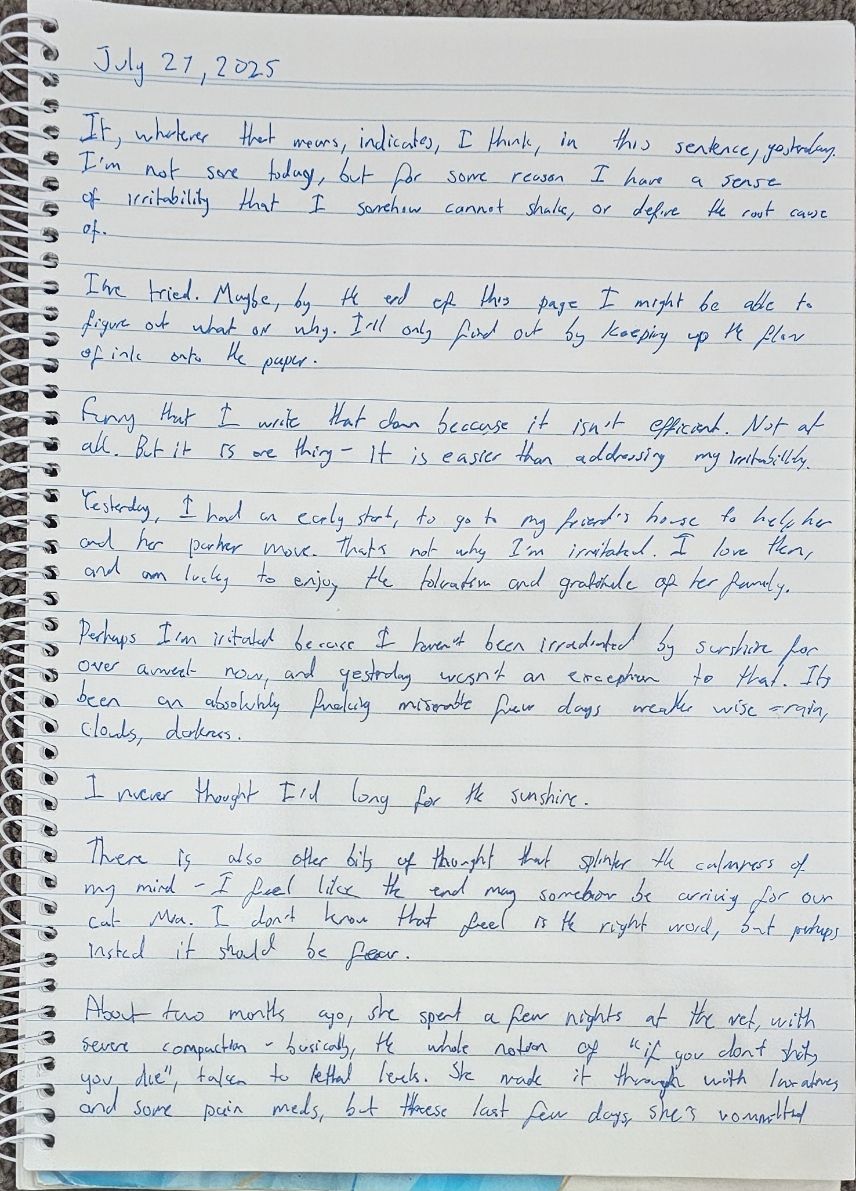 July 27, 2025
It, whatever that means, indicates, I think, in this sentence, yesterday.
I'm not sore today, but for some reason I have a sense
of irritability that I somehow cannot shake, or define the root cause
of.
I've tried. Maybe, by the end of this page I might be able to
figure out what or why. I'll only find out by keeping up the flow
of ink onto the paper.
Funny that I write that down because it isn't efficient. Not at
all. But it is one thing - it is easier than addressing my irritability.
Yesterday, I had an early start, to go to my friend's house to help her
and her partner move. That's not why I'm irritated. I love them,
and am lucky to enjoy the toleration and gratitude of her family.
Perhaps I'm irritated because I haven't been irradiated by sunshine for
over a week now, and yesterday wasn't an exception to that. It's
been an absolutely freaking miserable few days weather wise - rain,
clouds, darkness.
I never thought I'd long for the sunshine.
There is also other bits of thought that splinter the calmness of
my mind - I feel like the end may somehow be arriving for our
cat Mia. I don't know that feel is the right word, but perhaps
insted it should be fear.
About two months ago, she spent a few nights at the vet, with
severe compaction - basically, the whole notion of "if you don't shit,
you die", taken to lethal levels. She made it through with laxatives
and some pain meds, but these last few days, she's vomitted